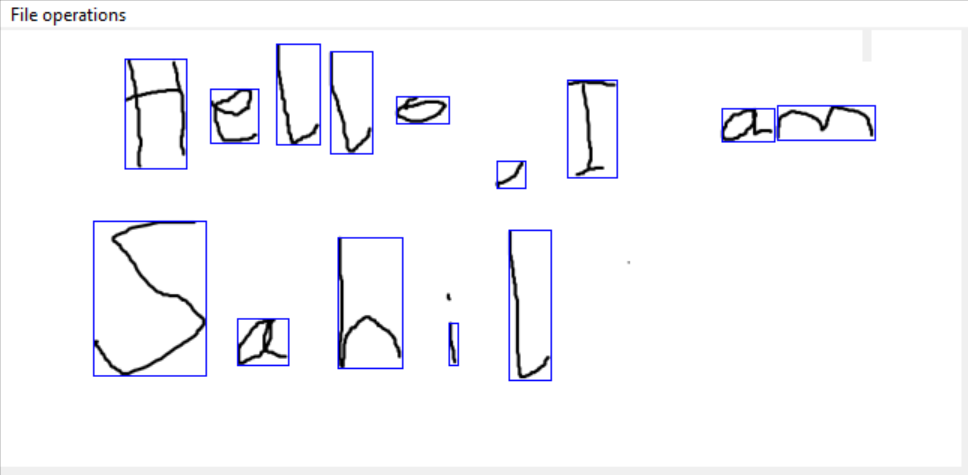 File operations
Hello, I am
Sahil